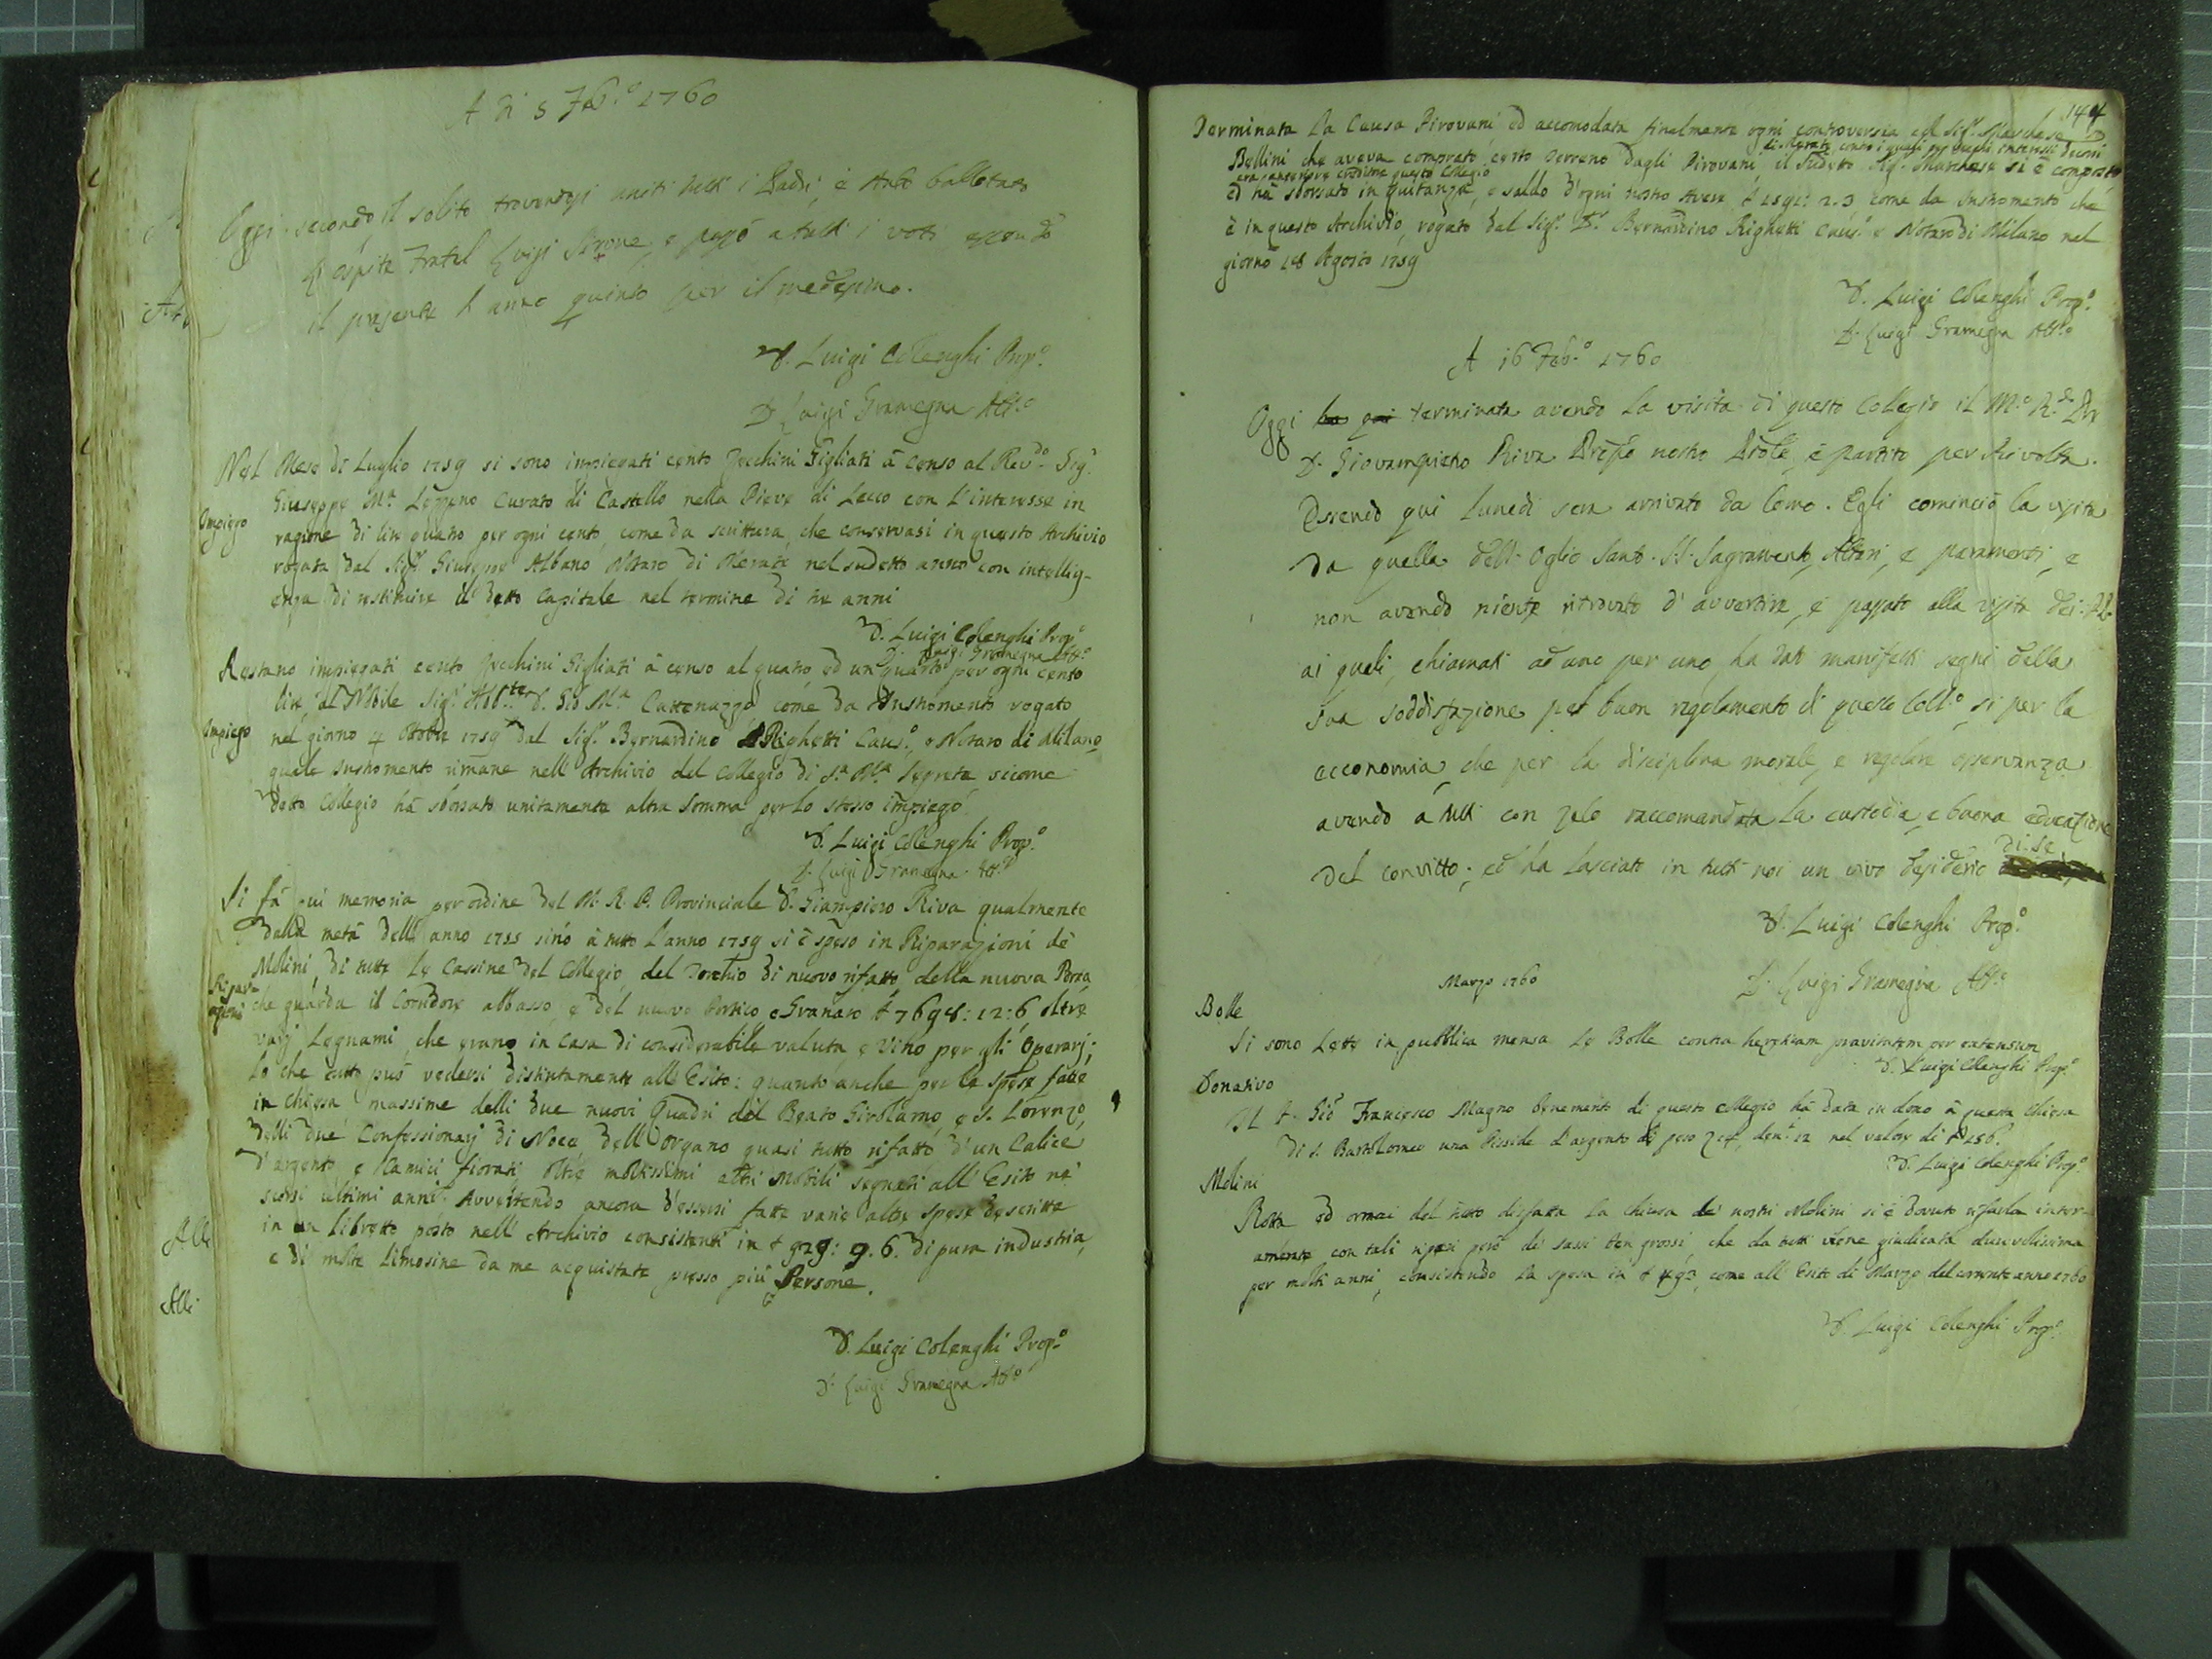 A di 5 Feb.º 1760
Oggi secondo il solito trovandosi uniti tutti i Padri, è stato ballottato
l'ospite Fratel Luigi Sirone, e passò a tutti i voti essendo
il presente l'anno quinto per il medesimo.
D. Luigi Colenghi Prop.º
D. Luigi Gramegna Att.º
Nel Mese di Luglio 1759 si sono impiegati cento Zecchini Gigliati à Censo al Rev.do Sig.r
Giuseppe M.a Lezzeno Curato di Castello nella Pieve di Lecco con L'interesse in
Impiego
ragione di lire quatro per ogni cento, come da scrittura, che conservasi in questo Archivio
rogata dal Sig.r Giuseppe Albano Notaro di Merate nel sudetto anno con intellig-
enza di restituire il detto Capitale nel termine di tre anni
D. Luigi Colenghi Prop.º
D. Luigi Gramegna Att.º
Restano impiegati cento Zecchini Gigliati à censo al quatro, ed un quarto per ogni cento
lire, al Nobile Sig.r D. Gio M.a Cattenazzo come da Instromento rogato
Impiego
nel giorno 4 Ottobre 1759 dal Sig.r Bernardino Righetti Caus.º, e Notaro di Milano
quale Instromento rimane nell'Archivio del Collegio di S.a M.a Segreta sicome
detto Collegio hà sborsato unitamente altra somma per lo stesso impiego
D. Luigi Colenghi Prop.º
D. Luigi Gramegna Att.º
Si fà qui memoria per ordine del M. R. P. Provinciale D. Giampiero Riva qualmente
dalla metà dell'anno 1755 sino à tutto L'anno 1759 si è speso in Riparazioni de
Molini, di tutte le Cassine del Collegio, del Torchio di nuovo rifatto, della nuova Porta
Ripar-
azioni
che guarda il Corridore abbasso, e del nuovo Portico e Granaro £ 7698: 12: 6 oltre
varj Legnami, che erano in Casa di considerabile valuta, e Vino per gli Operarj;
Lo che tutto può vedersi distintamente all'Esito: quanto anche per la spese fatte
in Chiesa massime delli due nuovi Quadri del Beato Girolamo, e S. Lorenzo,
delli due Confessionarj di Noce, dell'Organo quasi tutto rifatto, d'un Calice
d'argento, e Camici fiorati oltre moltissimi altri Mobili segnati all'Esito ne'
scorsi ultimi anni. Avvertendo ancora d'essersi fatte varie altre spese descritte
in un libretto posto nell'Archivio consistenti in £ 929: 9. 6. di pura industria,
e di molte Limosine da me acquistate presso più Persone.
D. Luigi Colenghi Prop.º
D. Luigi Gramegna Att.º
Alli
Alli
144
Terminata La Causa Pirovani ed accomodata finalmente ogni controversia col Sig.r Marchese D.
di Merate, contro i quali per
Bellini che aveva comprato certo terreno dagli Pirovani, il sudetto Sig.r Marchese si è composto,
era anteriore creditore questo Collegio
ed hà sborsato in quitanza, e saldo d'ogni nostro Avere £ 1591: 2. 3 come da Instromento che
è in questo Archivio, rogato dal Sig.r D.r Bernardino Righetti Caus.º e Notaro di Milano nel
giorno 18 Agosto 1759
D. Luigi Colenghi Prop.º
D. Luigi Gramegna Att.º
A 16 Feb.º 1760
Oggi terminata avendo la visita di questo Collegio il M.º R.do Pre
D. Giovampietro Riva Prepo nostro Prole, è partito per Rivolta.
Essendo qui lunedi sera arrivato da Como. Egli cominciò la visita
da quella dell'Oglio Santo. SS. Sagramento, Altari, e paramenti, e
non avendo niente ritrovato d'avvertire, è passato alla visita dei: PP.
ai quali, chiamati ad uno per uno, ha dati manifesti segni della
sua soddisfazione pel buon regolamento di questo Coll.º si per la
acconomia, che per la disciplina morale, e regolare osservanza
avendo a tutti con zelo raccomandata la custodia, e buona educazione
del convitto; ed ha lasciato in tutti noi un vivo desiderio di se
D. Luigi Colenghi Prop.º
D. Luigi Gramegna Att.º
Marzo 1760
Bolle
Si sono Lette in pubblica mensa Le Bolle contra hereticam pravitatem per extensum
D. Luigi Colenghi Prop.º
Donativo
Il P. Gio Francesco Magno benemerito di questo Collegio hà data in dono à questa Chiesa
di S. Bartolomeo una Pisside d'argento di peso den.r 12 nel valore di £ 156.
D. Luigi Colenghi Prop.º
Molini
Rotta ed ormai del tutto disfatta La Chiusa de' nostri Molini si è dovuto rifarla inter-
amente con tali ripari però di sassi ben grossi, che da tutti viene giudicata durevolissima
per molti anni, consistendo La spesa in £ 493, come all'Esito di Marzo del corrente anno 1760
D. Luigi Colenghi Prop.º